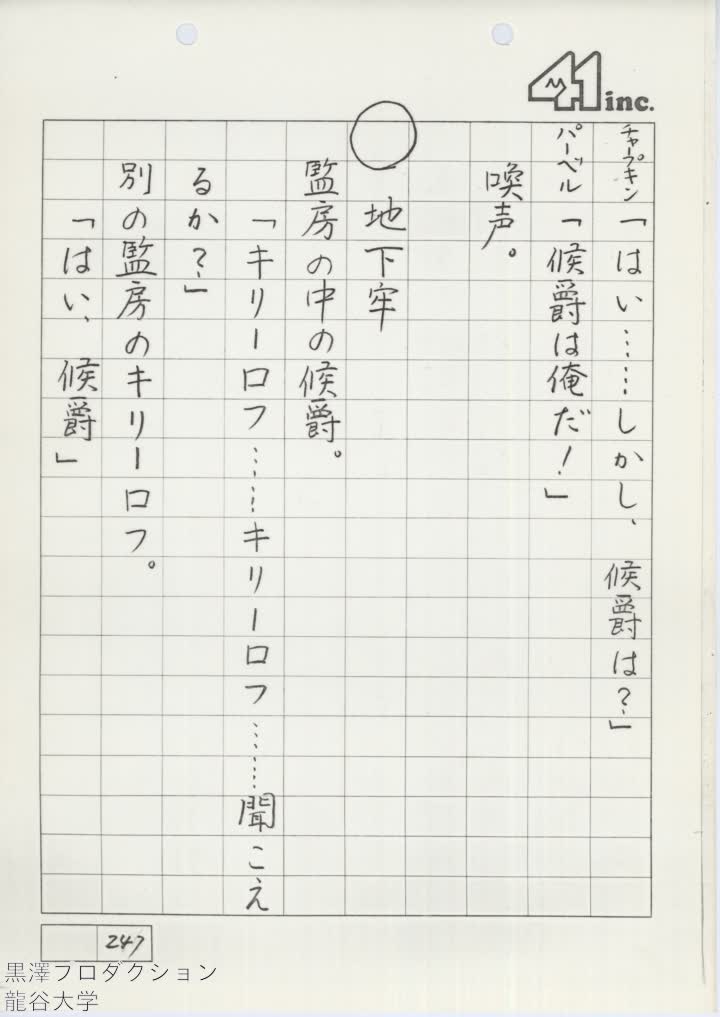 41 inc.
チャープキン「はい……しかし、候爵は?」
パーベル「候爵は俺だ!」
喚声。
○ 地下牢
監房の中の候爵。
「キリーロフ……キリーロフ……聞こえ
るか?」
別の監房のキリーロフ。
「はい、候爵」
247
黒澤プロダクション
龍谷大学